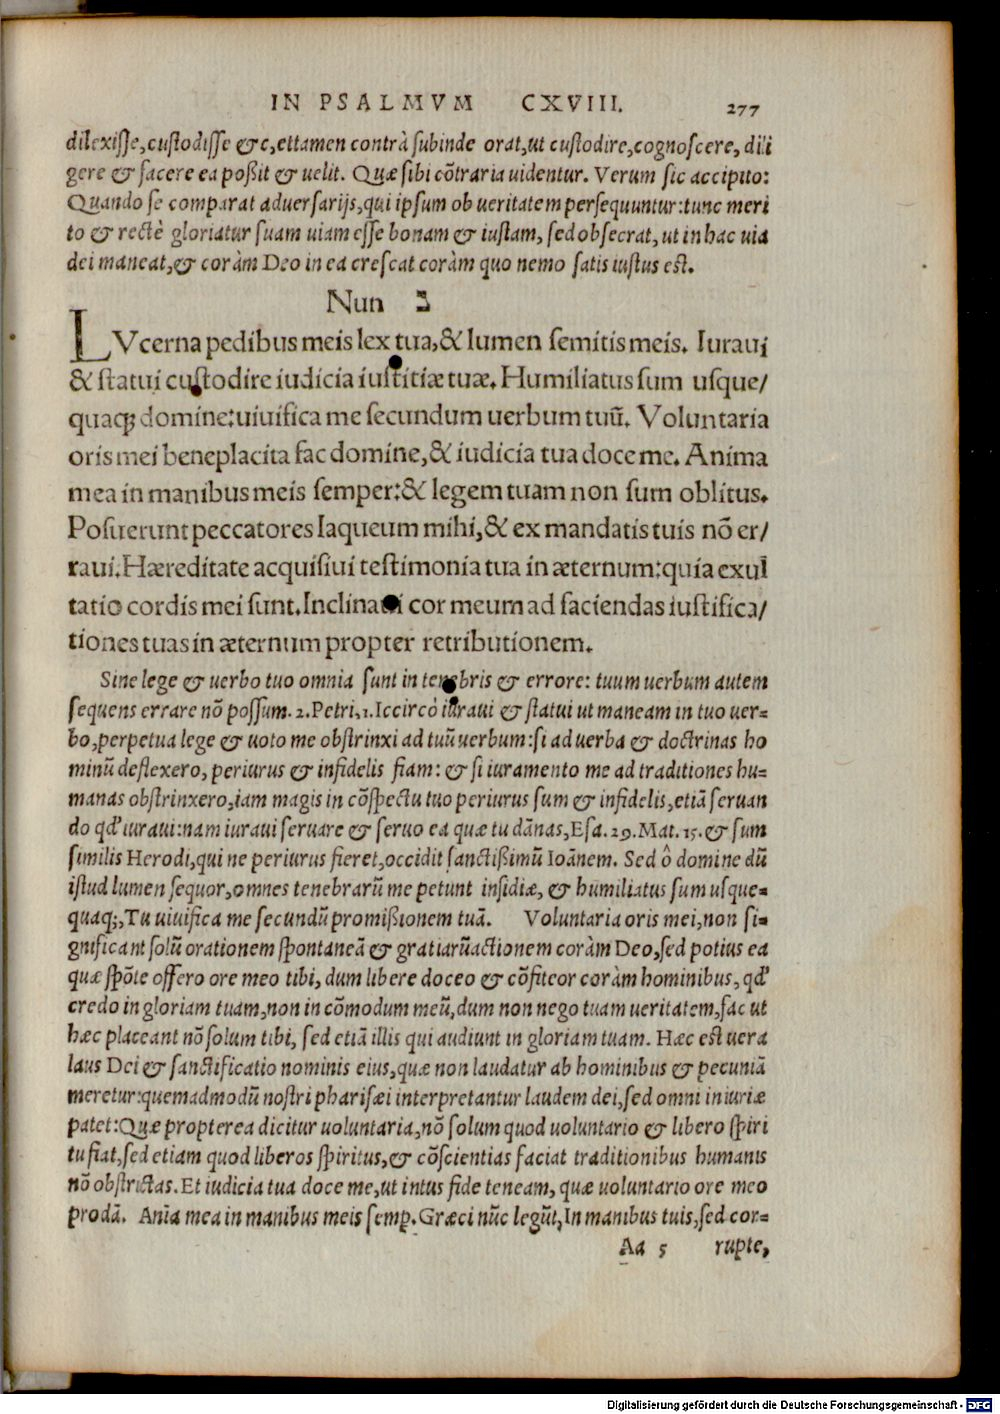 IN PSALMVM CXVIII. 277
dilexisse,custodisse &c,ettamen contrà subinde orat,ut custodire,cognoscere, dili
gere & facere ea poßit & uelit. Quæ sibi cõtraria uidentur. Verum sic accipito:
Quando se comparat aduersarijs,qui ipsum ob ueritatem persequuntur:tunc meri
to & rectè gloriatur suam uiam esse bonam & iustam, sed obsecrat, ut in hac uia
dei maneat,& coràm Deo in ea crescat coràm quo nemo satis iustus est.
Nun נ
LVcerna pedibus meis lex tua,& lumen semitis meis. Iuraui
& statui custodire iudicia iustitiæ tuæ. Humiliatus sum usque/
quaq; domine:uiuifica me secundum uerbum tuũ. Voluntaria
oris mei beneplacita fac domine,& iudicia tua doce me. Anima
mea in manibus meis semper:& legem tuam non sum oblitus.
Posuerunt peccatores laqueum mihi,& ex mandatis tuis nõ er/
raui.Hæreditate acquisiui testimonia tua in æternum:quia exul
tatio cordis mei sunt.Inclinaui cor meum ad faciendas iustifica/
tiones tuas in æternum propter retributionem.
Sine lege & uerbo tuo omnia sunt in tenebris & errore: tuum uerbum autem
sequens errare nõ possum. 2. Petri,1. Iccircò iuraui & statui ut maneam in tuo uer=
bo,perpetua lege & uoto me obstrinxi ad tuũ uerbum:si ad uerba & doctrinas ho
minũ deflexero, periurus & infidelis fiam: & si iuramento me ad traditiones hu=
manas obstrinxero,iam magis in cõspectu tuo periurus sum & infidelis,etiã seruan
do qđ iuraui:nam iuraui seruare & seruo ea quæ tu dãnas,Esa.29.Mat.15.& sum
similis Herodi,qui ne periurus fieret,occidit sanctißimũ Ioãnem. Sed ô domine dũ
istud lumen sequor,omnes tenebrarũ me petunt insidiæ, & humiliatus sum usque=
quaq;,Tu uiuifica me secundũ promißionem tuã. Voluntaria oris mei,non si=
gnificant solũ orationem spontaneã & gratiarũactionem coràm Deo,sed potius ea
quæ spõte offero ore meo tibi, dum libere doceo & cõfiteor coràm hominibus, qđ
credo in gloriam tuam,non in cõmodum meũ,dum non nego tuam ueritatem,fac ut
hæc placeant nõ solum tibi, sed etiã illis qui audiunt in gloriam tuam. Hæc est uera
laus Dei & sanctificatio nominis eius,quæ non laudatur ab hominibus & pecuniã
meretur:quemadmodũ nostri pharisæi interpretantur laudem dei,sed omni iniuriæ
patet:Quæ propterea dicitur uoluntaria,nõ solum quod uoluntario & libero spiri
tu fiat,sed etiam quod liberos spiritus,& cõscientias faciat traditionibus humanis
nõ obstrictas. Et iudicia tua doce me,ut intus fide teneam, quæ uoluntario ore meo
prodã. Anĩa mea in manibus meis semp. Græci nũc legũt,In manibus tuis,sed cor=
Aa 5 rupte,
Digitalisierung gefördert durch die Deutsche Forschungsgemeinschaft - DFG